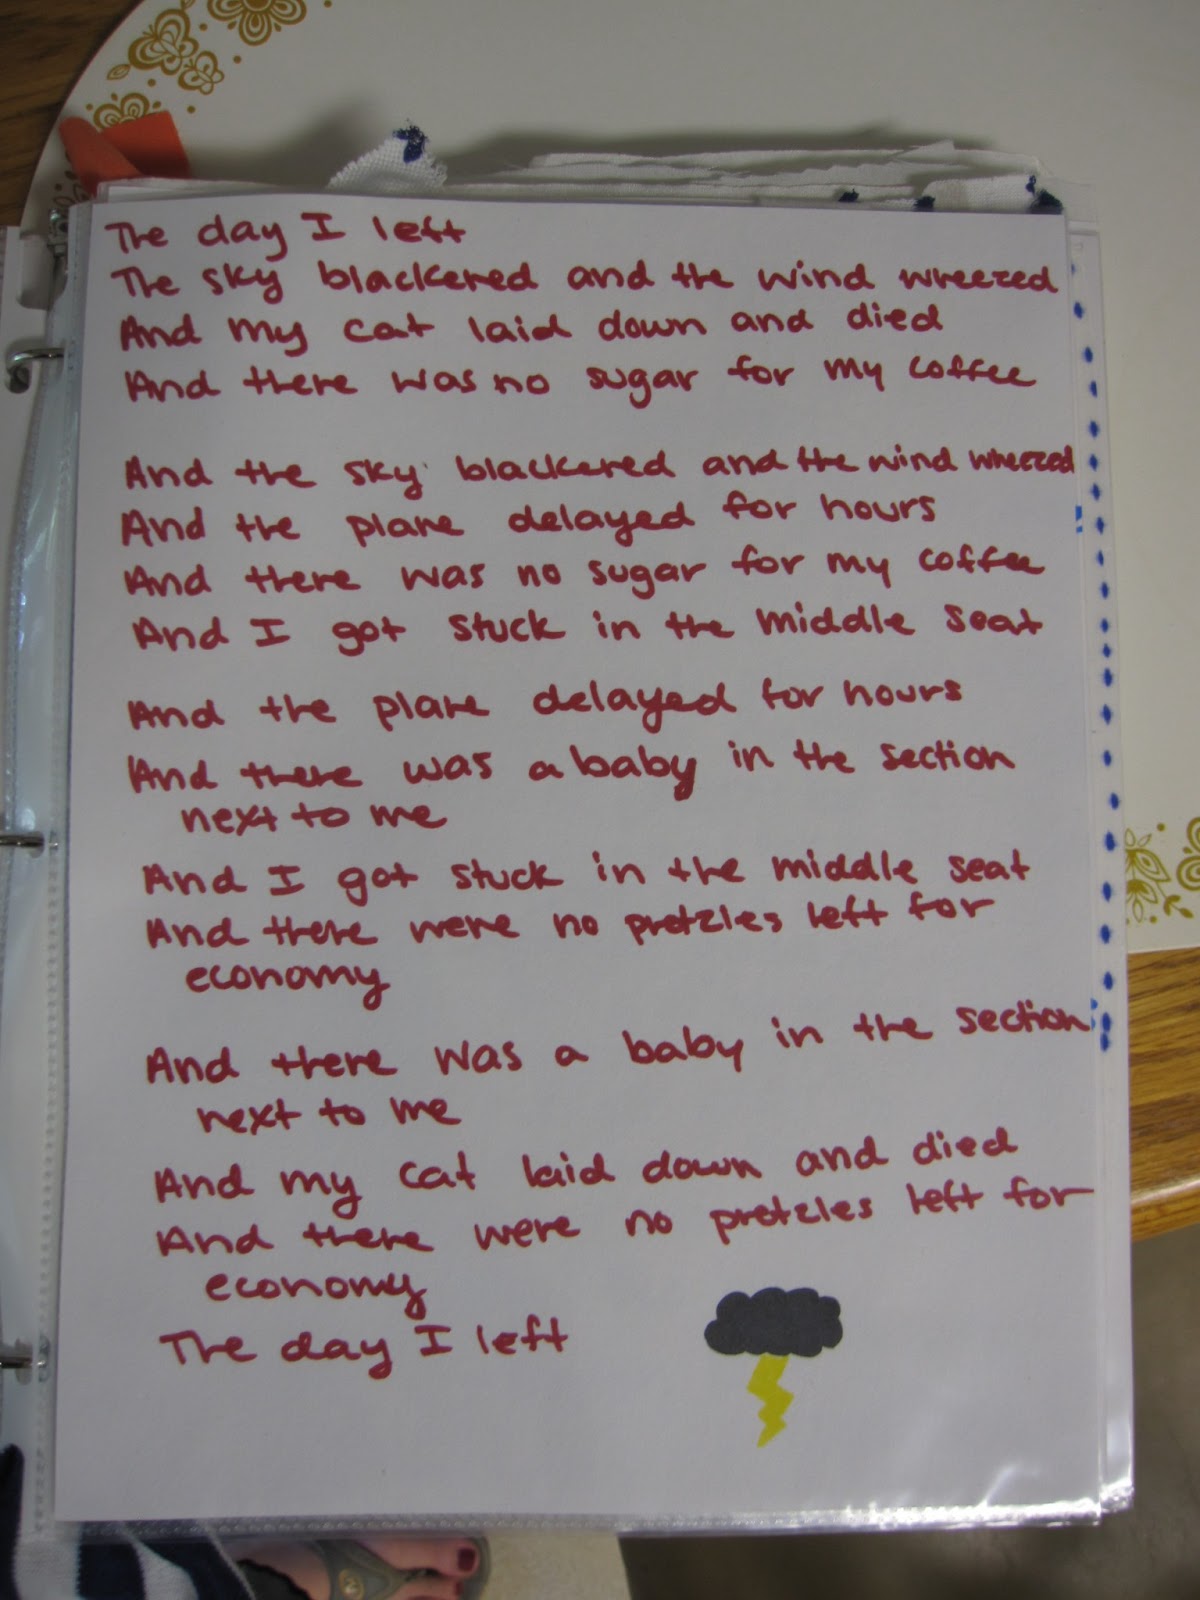 The day I left
The sky blackened and the wind wheezed
And my cat laid down and died
And there was no sugar for my coffee
And the sky blackened and the wind wheezed
And the plane delayed for hours
And there was no sugar for my coffee
And I got stuck in the middle seat
And the plane delayed for hours
And there was a baby in the section
next to me
And I got stuck in the middle seat
And there were no pretzles left for
economy
And there was a baby in the section
next to me
And my cat laid down and died
And there were no pretzles left for
economy
The day I left